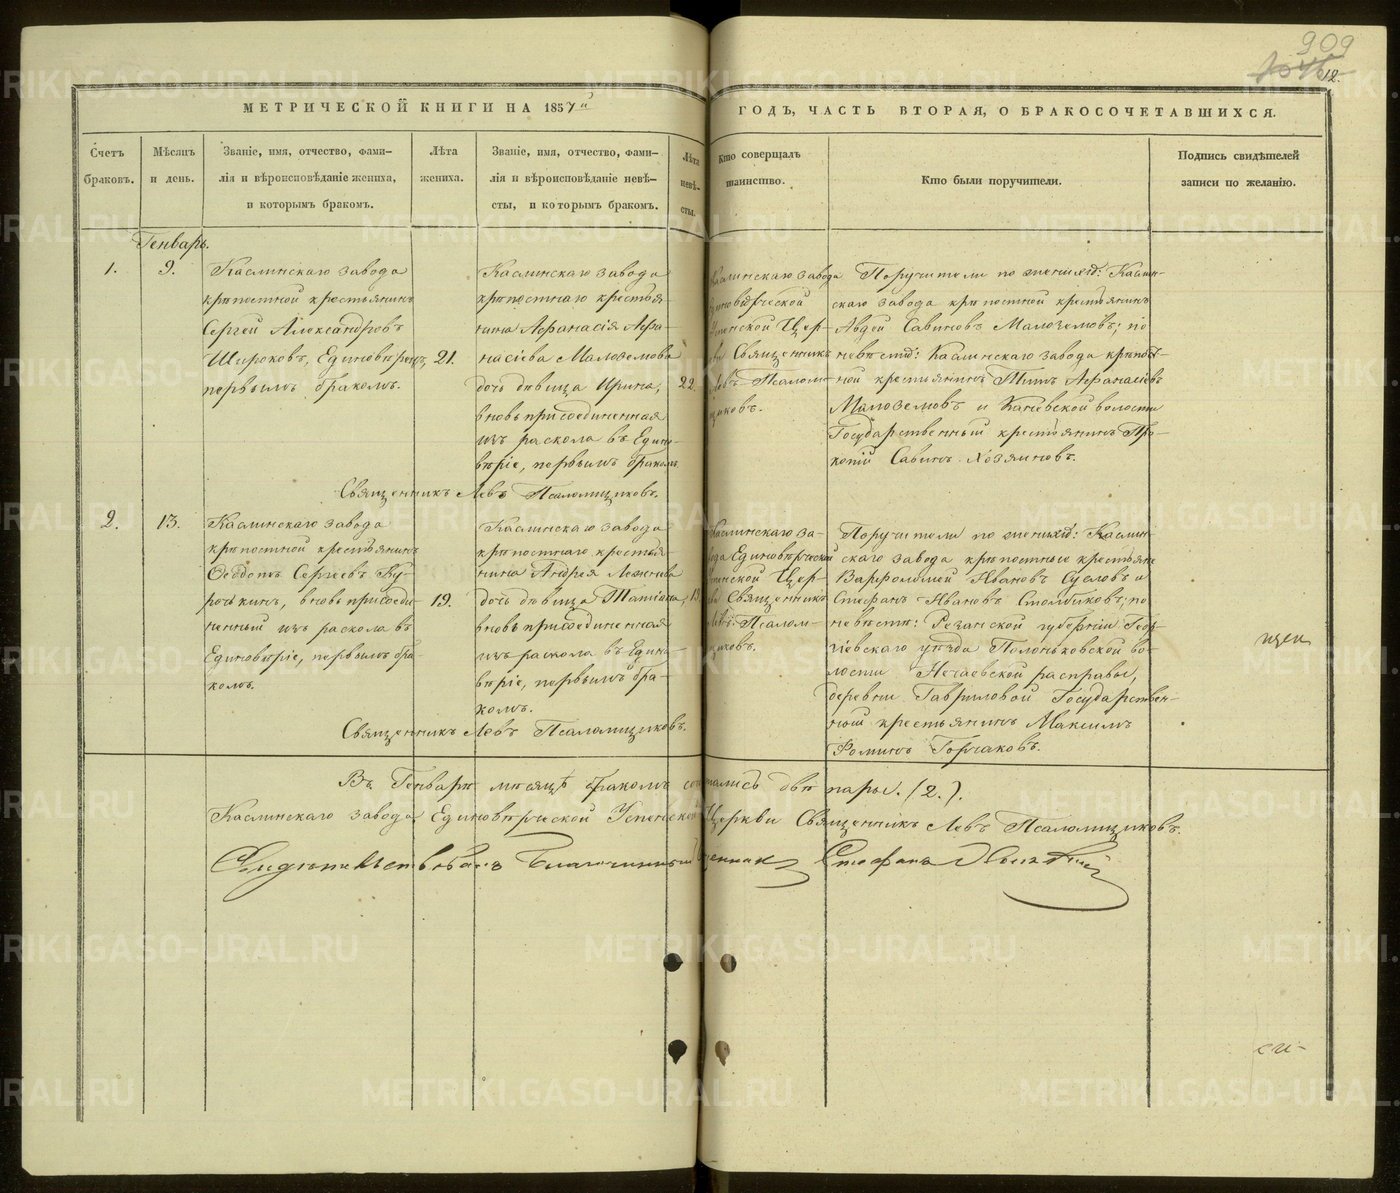 909
12.
МЕТРИЧЕСКОЙ КНИГИ НА 1857й
ГОДЪ, ЧАСТЬ ВТОРАЯ, О БРАКОСОЧЕТАВШИХСЯ.
Счетъ
браковъ.
Мѣсяцъ
и день.
Званіе, имя, отчество, фами-
лія и вѣроисповѣданіе жениха,
и которымъ бракомъ.
Лѣта
жениха.
Званіе, имя, отчество, фами-
лія и вѣроисповѣданіе невѣ-
сты, и которымъ бракомъ.
Лѣта
невѣ-
сты.
Кто совершалъ
таинство.
Кто были поручители.
Подпись свидѣтелей
записи по желанію.
Генварь.
1.
9.
Каслинскаго завода
крѣпостной крестьянинъ
Сергей Александровъ
Широковъ, Единовѣрецъ,
первымъ бракомъ.
21.
Каслинскаго завода
крѣпостнаго крестья-
нина Афанасія Афа-
насіева Малоземова
дочь дѣвица Ирина,
вновь присоединенная
изъ раскола въ Едино-
вѣріе, первымъ бракомъ.
22.
Каслинскаго завода
Единовѣрческой
Успенской Цер-
кви Священникъ
Левъ Псаломщ-
иковъ.
Поручители по женихѣ: Каслин-
скаго завода крѣпостной крестьянинъ
Авдей Савиновъ Малоземовъ; по
невѣстѣ: Каслинскаго завода крѣпост-
ной крестьянинъ Титъ Афанасіевъ
Малоземовъ и Каневской волости
Государственный крестьянинъ Про-
копій Савинъ Хозяиновъ.
Священникъ Левъ Псаломщиковъ.
2.
13.
Каслинскаго завода
крѣпостной крестьянинъ
Феддотъ Сергеевъ Ку-
рочькинъ, вновь присоеди-
ненный изъ раскола въ
Единовѣріе, первымъ бра-
комъ.
19.
Каслинскаго завода
крѣпостнаго крестья-
нина Андрея Лежнева
дочь дѣвица Татіана,
вновь присоединенная
изъ раскола въ Едино-
вѣріе, первымъ бра-
комъ.
Каслинскаго за-
вода Единовѣрческой
Успенской Цер-
кви Священникъ
Левъ Псалом-
щиковъ.
Поручители по женихѣ: Каслин-
скаго завода крѣпостные крестьяне
Варфоломей Ивановъ Сусловъ и
Стефанъ Ивановъ Столбиковъ, по
невѣстѣ: Резанской губерніи
уѣзда во-
лости Нечаевской расправы,
деревни Гавриловой Государствен-
ный крестьянинъ Максимъ
Фоминъ Горчаковъ.
Священникъ Левъ Псаломщиковъ.
Въ Генварѣ мѣсяцѣ бракомъ соч тались двѣ пары. (2.).
Каслинскаго завода Единовѣрческой Успенской Церкви Священникъ Левъ Псаломщиковъ.
Свидѣтельствовалъ Благочинный Священникъ Стефанъ